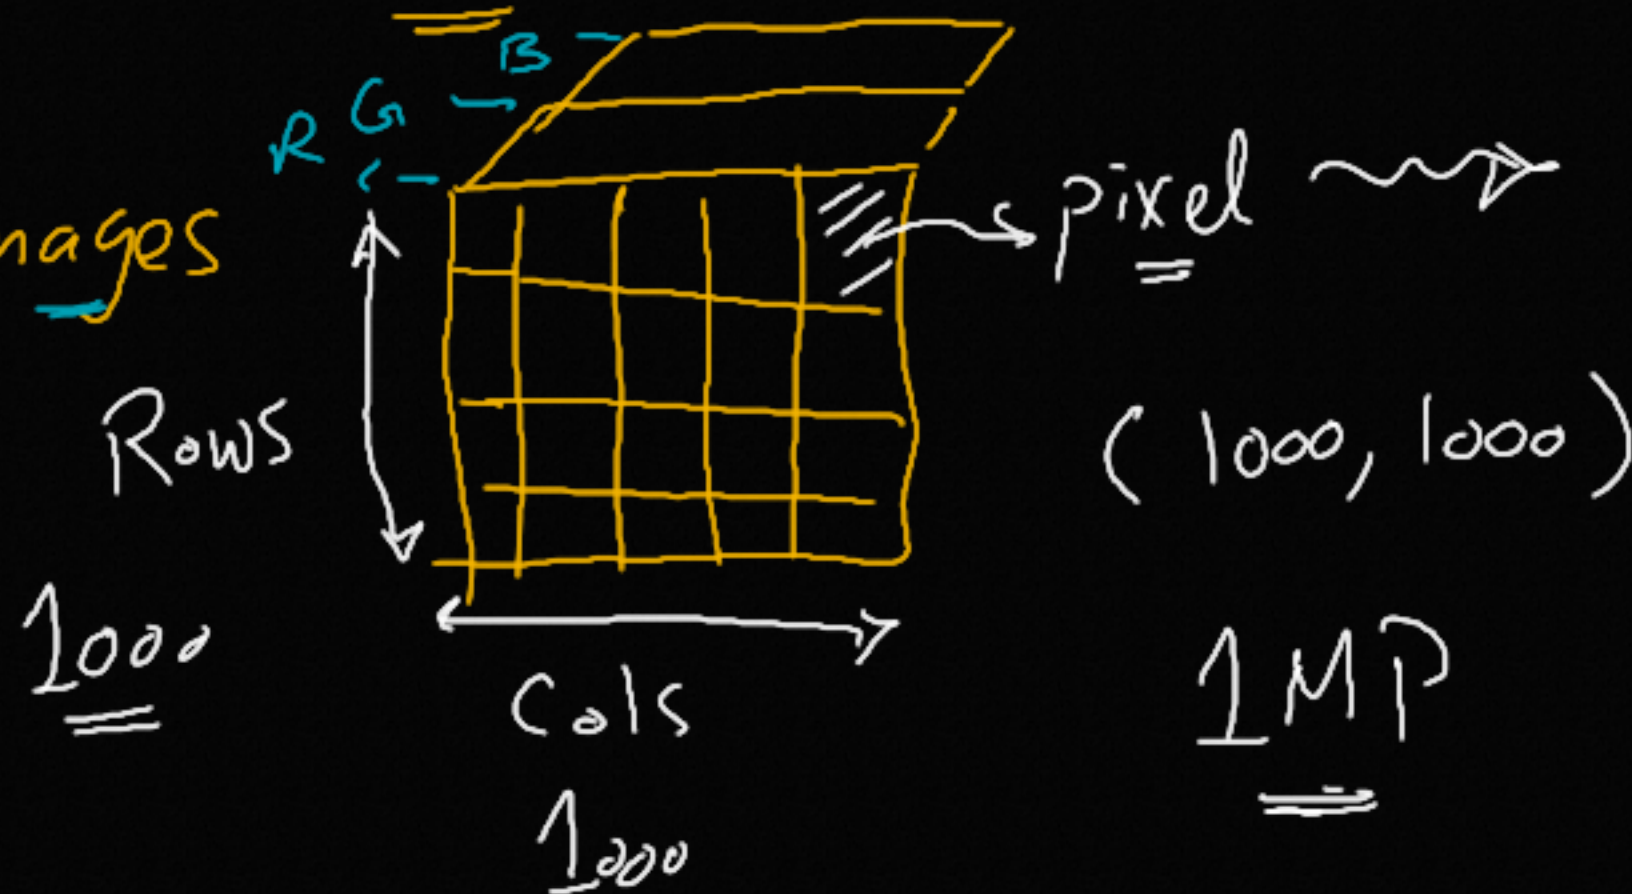 B
G
R
pixel
nages
Rows
(1000, 1000)
1000
Cols
1MP
1000